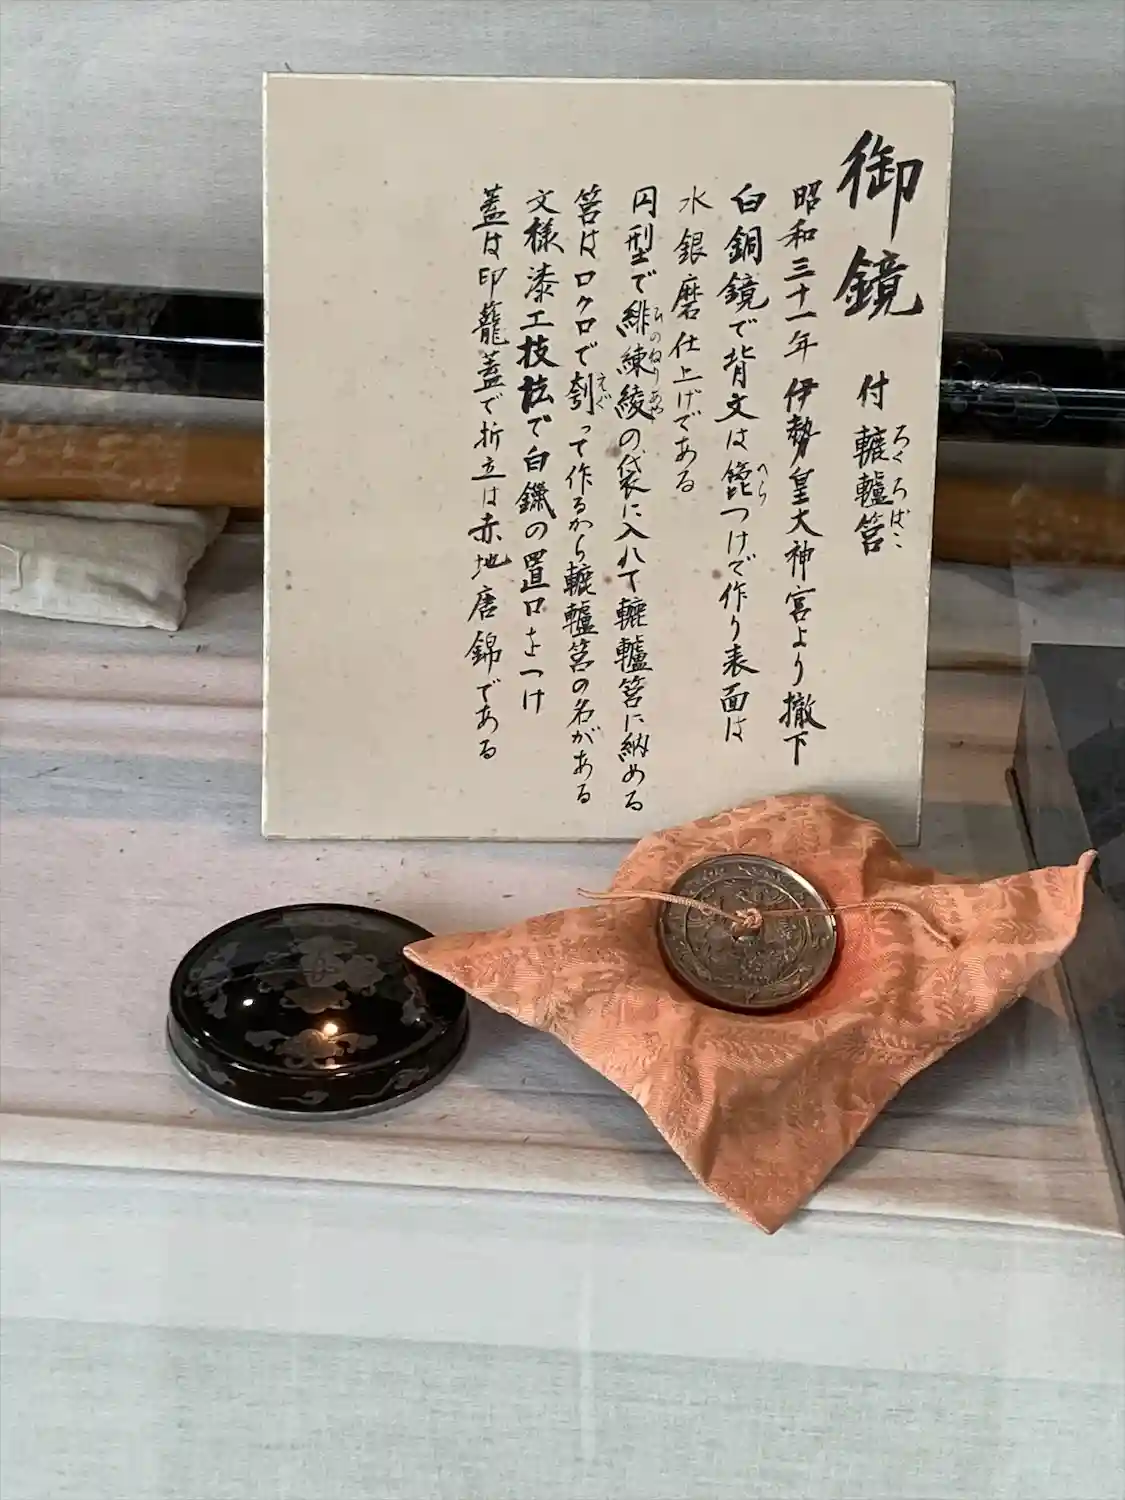 御鏡 付 轆轤筥
ろくろばこ
昭和三十一年 伊勢皇大神宮より撤下
白銅鏡で背文は箆つけで作り表面は
へら
水銀磨仕上げである
円型で緋練綾の袋に入れて轆轤筥に納める
ひのねりあや
筥はロクロで刳って作るから轆轤筥の名がある
えぐ
文様漆工技法で白鑞の置口をつけ
蓋は印籠蓋で折立は赤地唐錦である